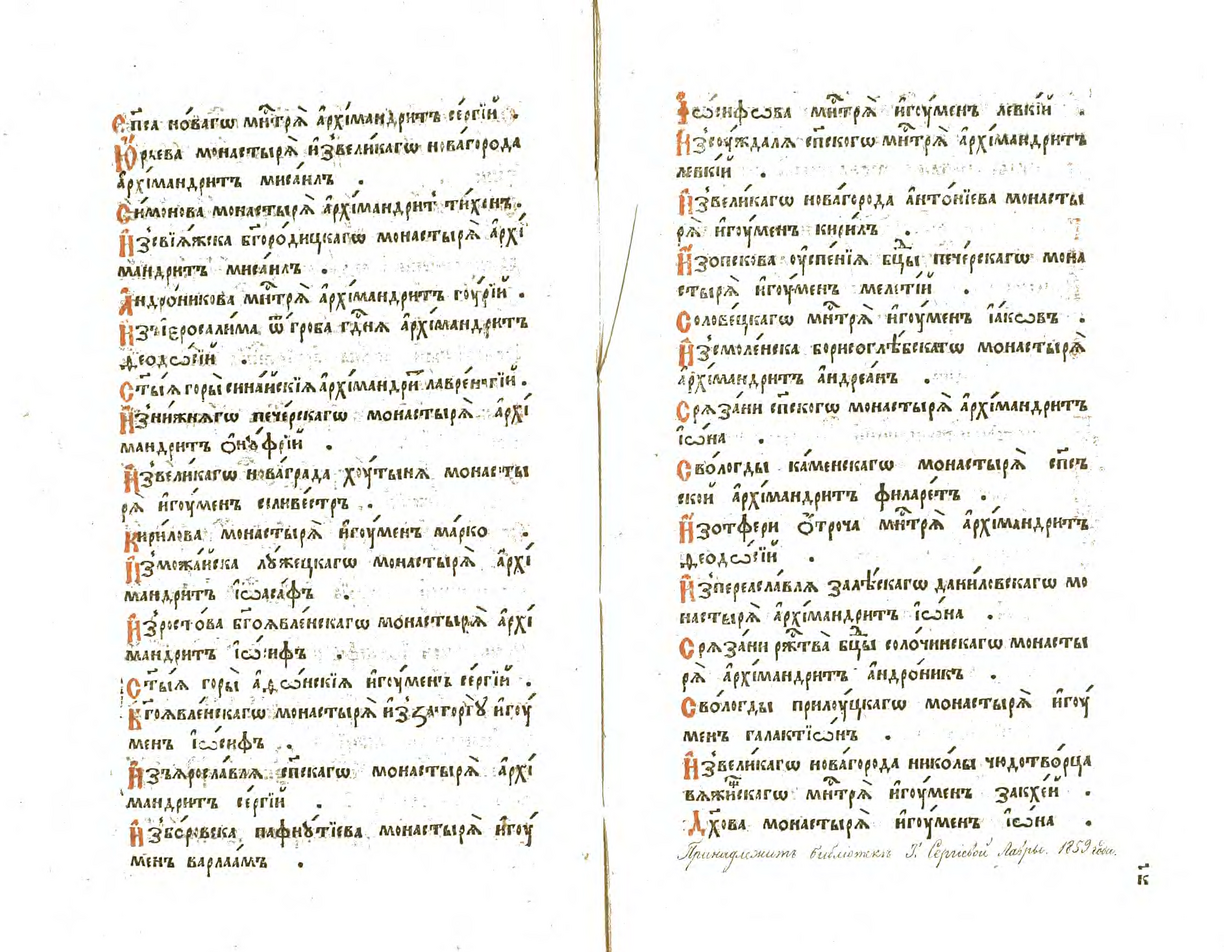 Сп҃са но́вагѡ мн҃трѧ̀ а҆рхїмандри́тъ се́ргїй .
Ю҆́рьева монастырѧ̀ и҆звели́кагѡ новагорода
а҆рхїмандритъ мисаи́лъ .
Си́монова монастырѧ̀ а҆рхїмандри́т ти́хонъ .
И҆зсвїѧ́жска бг҃оро́дицкагѡ монастырѧ̀ а҆рхї
мандритъ мисаи́лъ .
А҆ндро́никова мн҃трѧ̀ а҆рхїмандритъ гоу́рїй .
И҆зъїєросали́ма, ѿ гроба гд҃нѧ а҆рхїмандритъ
ѳеодѡ́сїй .
Ст҃ы́ѧ горы̀ сина́йскїѧ а҆рхїмандри лавре́нтїй .
И҆знижнѧгѡ пече́рскагѡ монастырѧ̀ а҆рхї
мандритъ ѻ҆нꙋ́фрїй .
И҆звели́кагѡ новаграда хоуты́нѧ монасты
рѧ̀ и҆гоу́менъ селиве́стръ .
Кири́лова монастырѧ̀ и҆гоу́менъ ма́рко .
И҆зможа́йска лꙋ́жецкагѡ монастырѧ̀ а҆рхї
мандри́тъ і҆ѡаса́фъ .
И҆зросто́ва бг҃оѧвле́нскагѡ монастырѧ̀ а҆рхї
мандритъ і҆ѡ́сифъ .
Ст҃ы́ѧ горы̀ а҆ѳѡ́нскїѧ и҆гоу́менъ се́ргїй .
Бг҃оѧвле́нскагѡ монастырѧ̀ и҆ззато́ргꙋ и҆гоу́
менъ і҆ѡ́сифъ .
И҆зъѧросла́влѧ сп҃скагѡ монастырѧ̀ а҆рхї
мандритъ се́ргїй .
И҆збо́ровска пафнꙋ́тїева монастырѧ̀ и҆гоу́
менъ варлаа́мъ .
І҆ѡ́сифѡва мн҃трѧ̀ и҆гоу́менъ левкі́й .
И҆зсоу́ждалѧ сп҃скогѡ мн҃трѧ̀ а҆рхїмандритъ
левкі́й .
И҆звели́кагѡ новагорода а҆нто́нїева монасты
рѧ̀ и҆гоу́менъ кири́лъ .
И҆зопскова оу҆спе́нїѧ бц҃ы пече́рскагѡ мона
стырѧ̀ и҆гоу́менъ меле́тїй .
Солове́цкагѡ мн҃трѧ̀ и҆гоу́менъ і҆а́кѡвъ .
И҆зсмоле́нска борисоглѣ́бскагѡ монастырѧ̀
а҆рхїмандритъ а҆ндреа́нъ .
Срѧза́ни сп҃скогѡ монастырѧ̀ а҆рхїмандритъ
і҆ѡ́на .
Сво́логды ка́менскагѡ монастырѧ̀ сп҃съ
ской а҆рхїмандритъ филаре́тъ .
И҆зотфери ѻ҆́троча мн҃трѧ̀ а҆рхїмандритъ
ѳеодѡ́сїй .
И҆зпереасла́влѧ залѣ́скагѡ дани́ловскагѡ мо
настырѧ̀ а҆рхїмандритъ і҆ѡ́на .
Срѧза́ни рж҃тва̀ бц҃ы соло́чинскагѡ монасты
рѧ̀ а҆рхїмандритъ а҆ндро́никъ .
Сво́логды прилоу́цкагѡ монастырѧ̀ и҆гоу́
менъ галактїѡ́нъ .
И҆звели́кагѡ новагорода нико́лы чюдотво́рца
вѧжи́скагѡ мн҃трѧ̀ и҆гоу́менъ закхе́й .
Дх҃ова монастырѧ̀ и҆гоу́менъ і҆ѡ́на .
Принадлежитъ библіотекѣ Т. Сергіевой Лавры. 1859 года.
к҃